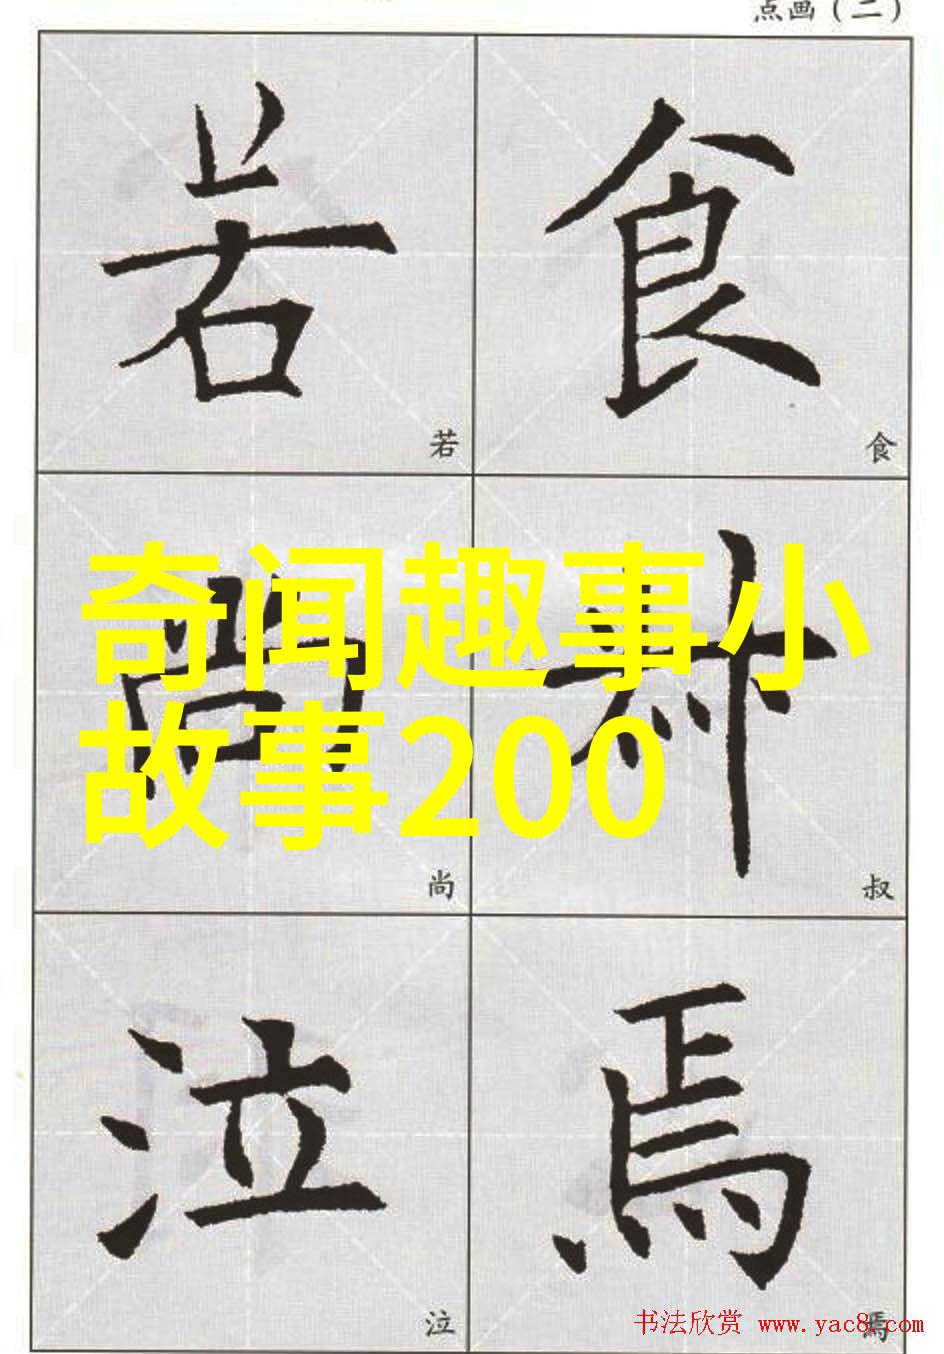 点画（二）
若 食
若 食
奇闻趣事小
故事200
尚 叔
尚 叔
泣 焉
泣 焉
书法欣赏 www.yac8.com